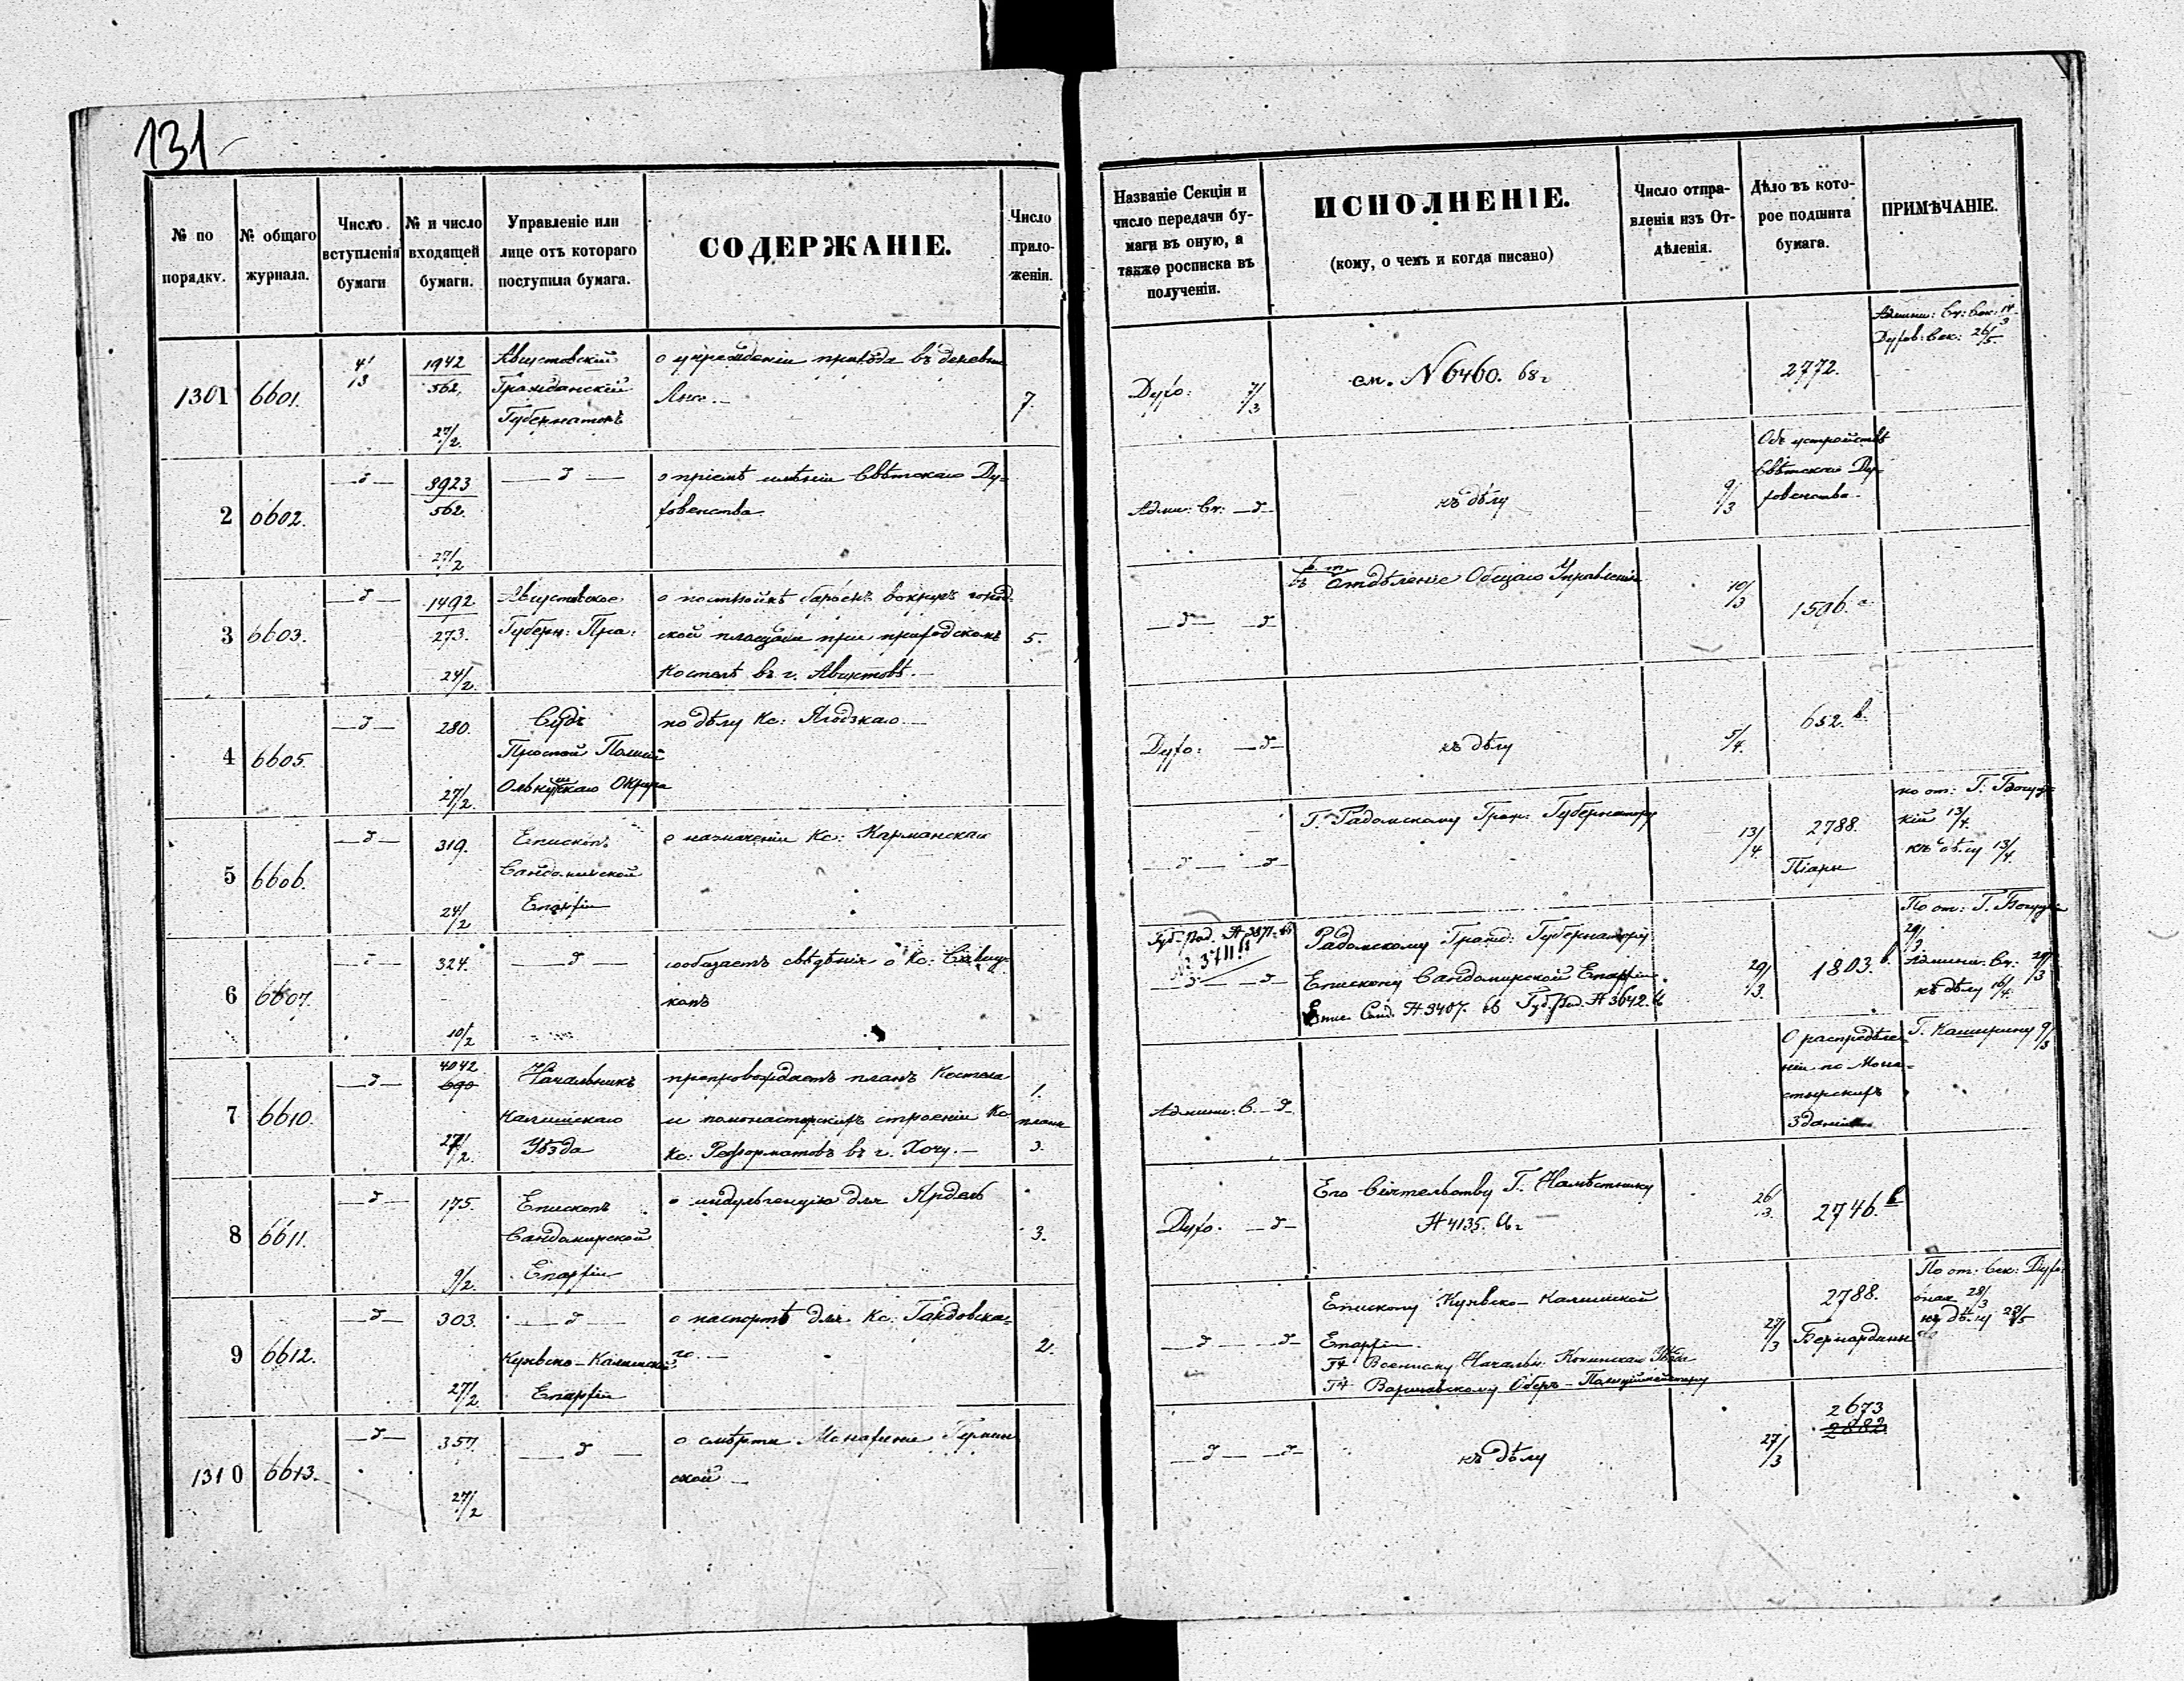 131
№ по порядку.
№ общаго журнала.
Число вступленія бумаги
№ и число входящей бумаги.
Управленіе или лице отъ котораго поступила бумага.
СОДЕРЖАНІЕ.
Число приложеній.
Названіе Секціи и число передачи бумаги въ оную, а также росписка въ полученіи.
ИСПОЛНЕНІЕ.
(кому, о чемъ и когда писано)
Число отправленія изъ Отдѣленія.
Дѣло въ которое подшита бумага.
ПРИМѢЧАНІЕ.
1301 6601. 4/13 1942 562, 27/2.
Августовскій
Гражданскій
Губернаторъ
о учрежденіи прихода въ деревни
7.
Духо: 7/3
см. N 6460. 68 г
2772.
Админ: Св: Сек: 14/3
Духов: Сек: 26/5
2 6602. —д— 8923 562. 27/2
—д—
о пріемѣ имѣнія Свѣтскаго Ду-
ховенства.
Адми: Св: —д—
къ дѣлу
9/3
Объ устройствѣ
Свѣтскаго Ду-
ховенства.
3 6603. —д— 1492 273. 24/2.
Августовское
Губерн: Пра:
о постройкѣ вокругъ город-
ской площади при приходскомъ
Костелѣ въ г. Августовѣ.
5.
—д— —д
въ Отдѣленіе Общаго Управленія
10/3
1506.
4 6605. —д— 280. 27/2.
Судъ
Простой Полиціи
Олькушскаго Округа
по дѣлу Кс: Ягодзкаго
Духо: —д—
къ дѣлу
5/4.
652. в.
5 6606. —д— 319. 24/2
Епископъ
Сандомирской
Епархіи
о назначеніи Кс: Карманскаго
—д— —д—
Г. Радомскому Граж: Губернатору
13/4.
2788.
Піары
по от: Г. Богуц-
кій 13/4.
къ дѣлу 13/4.
6 6607. —д— 324. 10/2
—д—
сообщаетъ свѣдѣнія о Кс:
№ 3711
—д— —д—
Радомскому Гражд: Губернатору
Епископу Сандомирской Епархіи.
Епис. Санд. № 3407. 66 Губ. Рад. № 3642. 66
29/3.
1803.
По от: Г. Богуцкі
29/3.
Админ. Св: 29/3
къ дѣлу 16/4.
7 6610. —д— 4042 690 27/2.
Начальникъ
Калишскаго
Уѣзда
препровождаетъ планъ Костела
и помонастырскихъ строеній Кс
Кс: Реформатовъ въ г. Хочу.
1.
планъ
3.
Админ: С. —д
О распредѣле-
ніи по-Мона-
стырскихъ
Зданій
Г. Каширину 9/3
8 6611. —д— 175. 9/2.
Епископъ
Сандомирской
Епархіи
о индульгенцію для Ярдель
3.
Духо. —д—
Его Сіятельству Г. Намѣстнику
№ 4135. 66 г
26/3.
2746. в
9 6612. —д— 303. 27/2
—д—
Куявско-Калишской
Епархіи
о паспортѣ для Кс.
го.
2.
—д— —д—
Епископу Куявско-Калишской
Епархіи.
Г. Военному Начальн: Конинскаго Уѣзда
Г. Варшавскому Оберъ-Полиціймейстеру
27/3
2788.
Бернардины
По от: Сек: Духо:
28/3
къ дѣлу 28/5
1310 6613. —д— 357. 27/2
—д—
о смерти Монахини
ской
—д— —д—
къ дѣлу
27/3
2673
2882